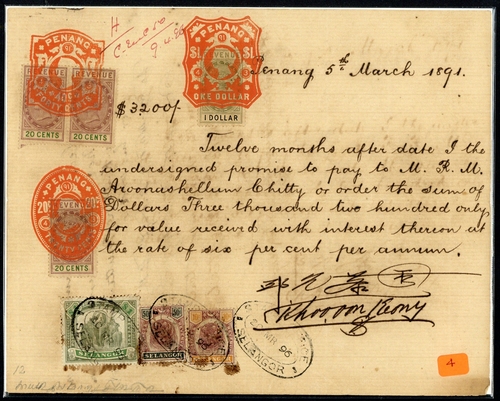 H
PENANG
$1
PENANG
$1
REVENUE
REVENUE
20 CENTS
20 CENTS
ONE DOLLAR
1 DOLLAR
Penang 5th March 1891.
$3200/-
Twelve months after date I the
undersigned promise to pay to M. R. M.
Aroonashellum Chitty or order the sum of
Dollars Three thousand two hundred only
for value received with interest thereon at
the rate of six per cent per annum.
PENANG
20
20
20 CENTS
SELANGOR
SELANGOR
SELANGOR
SELANGOR
4